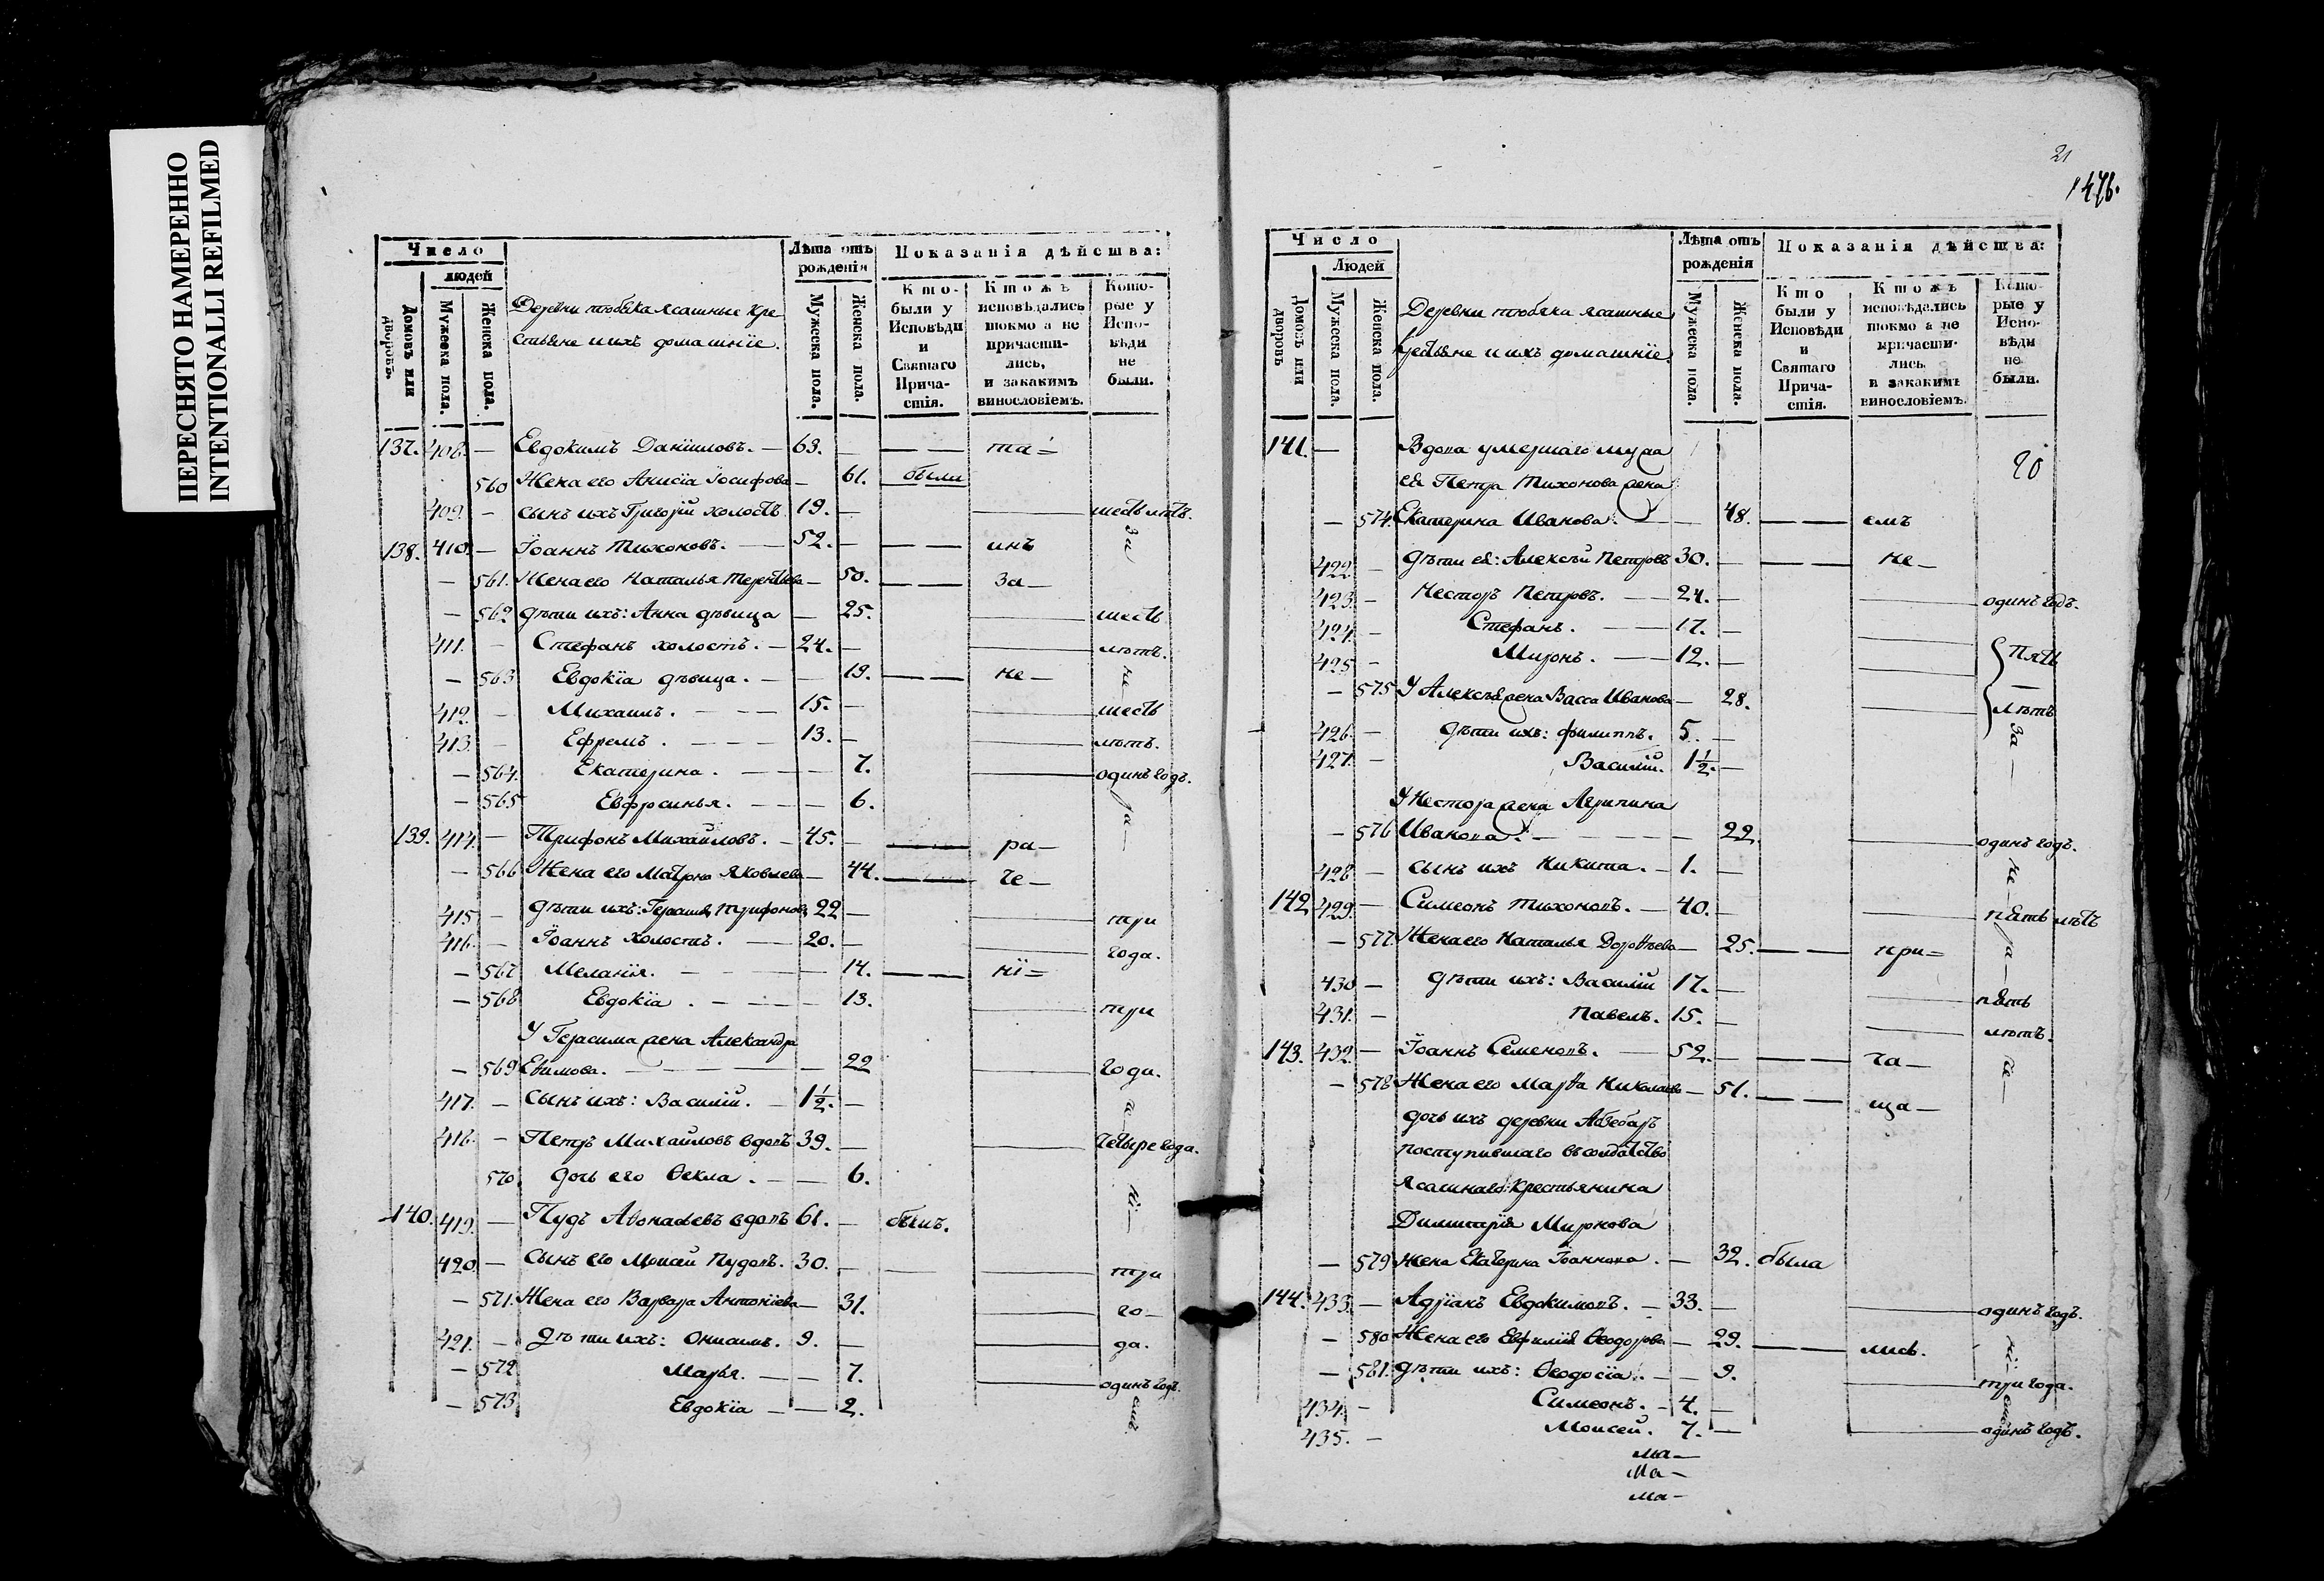 ПЕРЕСНЯТО НАМЕРЕННО
INTENTIONALLI REFILMED
Число
людей
Домовъ или дворовъ.
Мужеска пола.
Женска пола.
Деревни тюбяка ясашные кре
стьяне и ихъ домашніе.
Лѣта отъ рожденія
Мужеска пола.
Женска пола.
Показанія дѣйства:
Кто были у Исповѣди и Святаго Причастія.
Ктожъ исповѣдались токмо а не причастились, и закакимъ винословіемъ.
Которые у Исповѣди не были.
137. 408. — Евдокимъ Даниловъ. — 63. — — — та=
560 Жена его Анисіа Іосифова — 61. были
409. — сынъ ихъ Григорій холостъ 19. — — шесть лѣтъ.
За
138. 410. — Іоаннъ Тихоновъ. — 52. — — — инъ
— 561. Жена его Наталья Терентьева — 50. — — За —
— 562 дѣти ихъ: Анна дѣвица — 25. — шесть
411. — Стефанъ холостъ. — 24. — — лѣтъ.
— 563 Евдокіа дѣвица. — — 19. — — не — не
412. — Михаилъ. — — — 15. — — шесть
413. — Ефремъ. — — — 13. — — лѣтъ.
— 564. Екатерина. — — — 7. — одинъ годъ.
— 565 Евфросинья. — — — 6.
ра —
139. 414. — Трифонъ Михайловъ. — 45. — — — ра —
— 566 Жена его Матрона Яковлева — 44. — — че —
415 — дѣти ихъ: Герасимъ Трифоновъ 22 — — три
416. — Іоаннъ холостъ. — 20. — — года.
— 567 Меланія. — — — — 14. — — ні=
— 568 Евдокіа. — — — — 13. — три
У Герасима жена Александра
— 569 Евимова. — — — — 22 — года.
417. — Сынъ ихъ: Василій. — 1½. —
418. — Петръ Михайловъ вдовъ 39. — — четыре года.
570 дочь его Ѳекла. — — 6.
ні —
140. 419. — Пудъ Аѳонасьевъ вдовъ 61. — былъ.
420. — сынъ его Моисей Пудовъ. 30. — — — три
— 571. Жена его Варвара Антоніева — 31. — го —
421. — дѣти ихъ: Онисимъ. 9. — — да.
— 572 Марья. — — 7. — одинъ годъ.
— 573 Евдокіа — — 2.
емъ.
21
1476.
Число
Людей
Домовъ или дворовъ
Мужеска пола.
Женска пола.
Деревни тюбяка ясашные
Крестьяне и ихъ домашніе
Лѣта отъ рожденія
Мужеска пола.
Женска пола.
Показанія дѣйства:
Кто были у Исповѣди и Святаго Причастія.
Ктожъ исповѣдались токмо а не причастились, и закакимъ винословіемъ.
Которые у Исповѣди не были.
20
141. — Вдова умершаго мужа
ея Петра Тихонова жена
— 574. Екатерина Иванова. — — 48. — — емъ
422 — дѣти ея: Алексѣй Петровъ 30. — — — не —
423. — Несторъ Петровъ. — — 24. — — одинъ годъ.
424. — Стефанъ. — — 17. — —
425 — Миронъ. — — 12. — — пять
— 575 У Алексѣя жена Васса Иванова — 28. — лѣтъ
426. — дѣти ихъ: Филиппъ. 5. — За
427. — Василій. 1½. — —
У Нестора жена Агрипина
— 576 Иванова. — — — — 22 — одинъ годъ.
428 — сынъ ихъ Никита. — 1. — не
142 429. — Симеонъ Тихоновъ. — 40. — — пять лѣтъ
— 577 Жена его Наталья Дороѳѣева — 25. — — при=
ра —
430 — дѣти ихъ: Василій 17. — — пять
431. — Павелъ. 15. — — лѣтъ.
143. 432. — Іоаннъ Семеновъ. — 52. — — — ча —
че —
— 578 Жена его Марѳа Николаева — 51. — — ща —
дочь ихъ деревни Абзебаръ
поступившаго въ солдатство
ясашнаго крестьянина
Димитрія Миронова
— 579 жена Екатерина Іоаннова. — 32. была
144. 433. — Адріанъ Евдокимовъ. — 33. — — одинъ годъ.
— 580 Жена его Евфимія Ѳеодорова — 29. — — лись. ні —
— 581. дѣти ихъ: Ѳеодосіа. — — 9. — три года.
434. — Симеонъ. — 4. — емъ
435. — Моисей. 7. — — одинъ годъ.
ма —
ма —
ма —